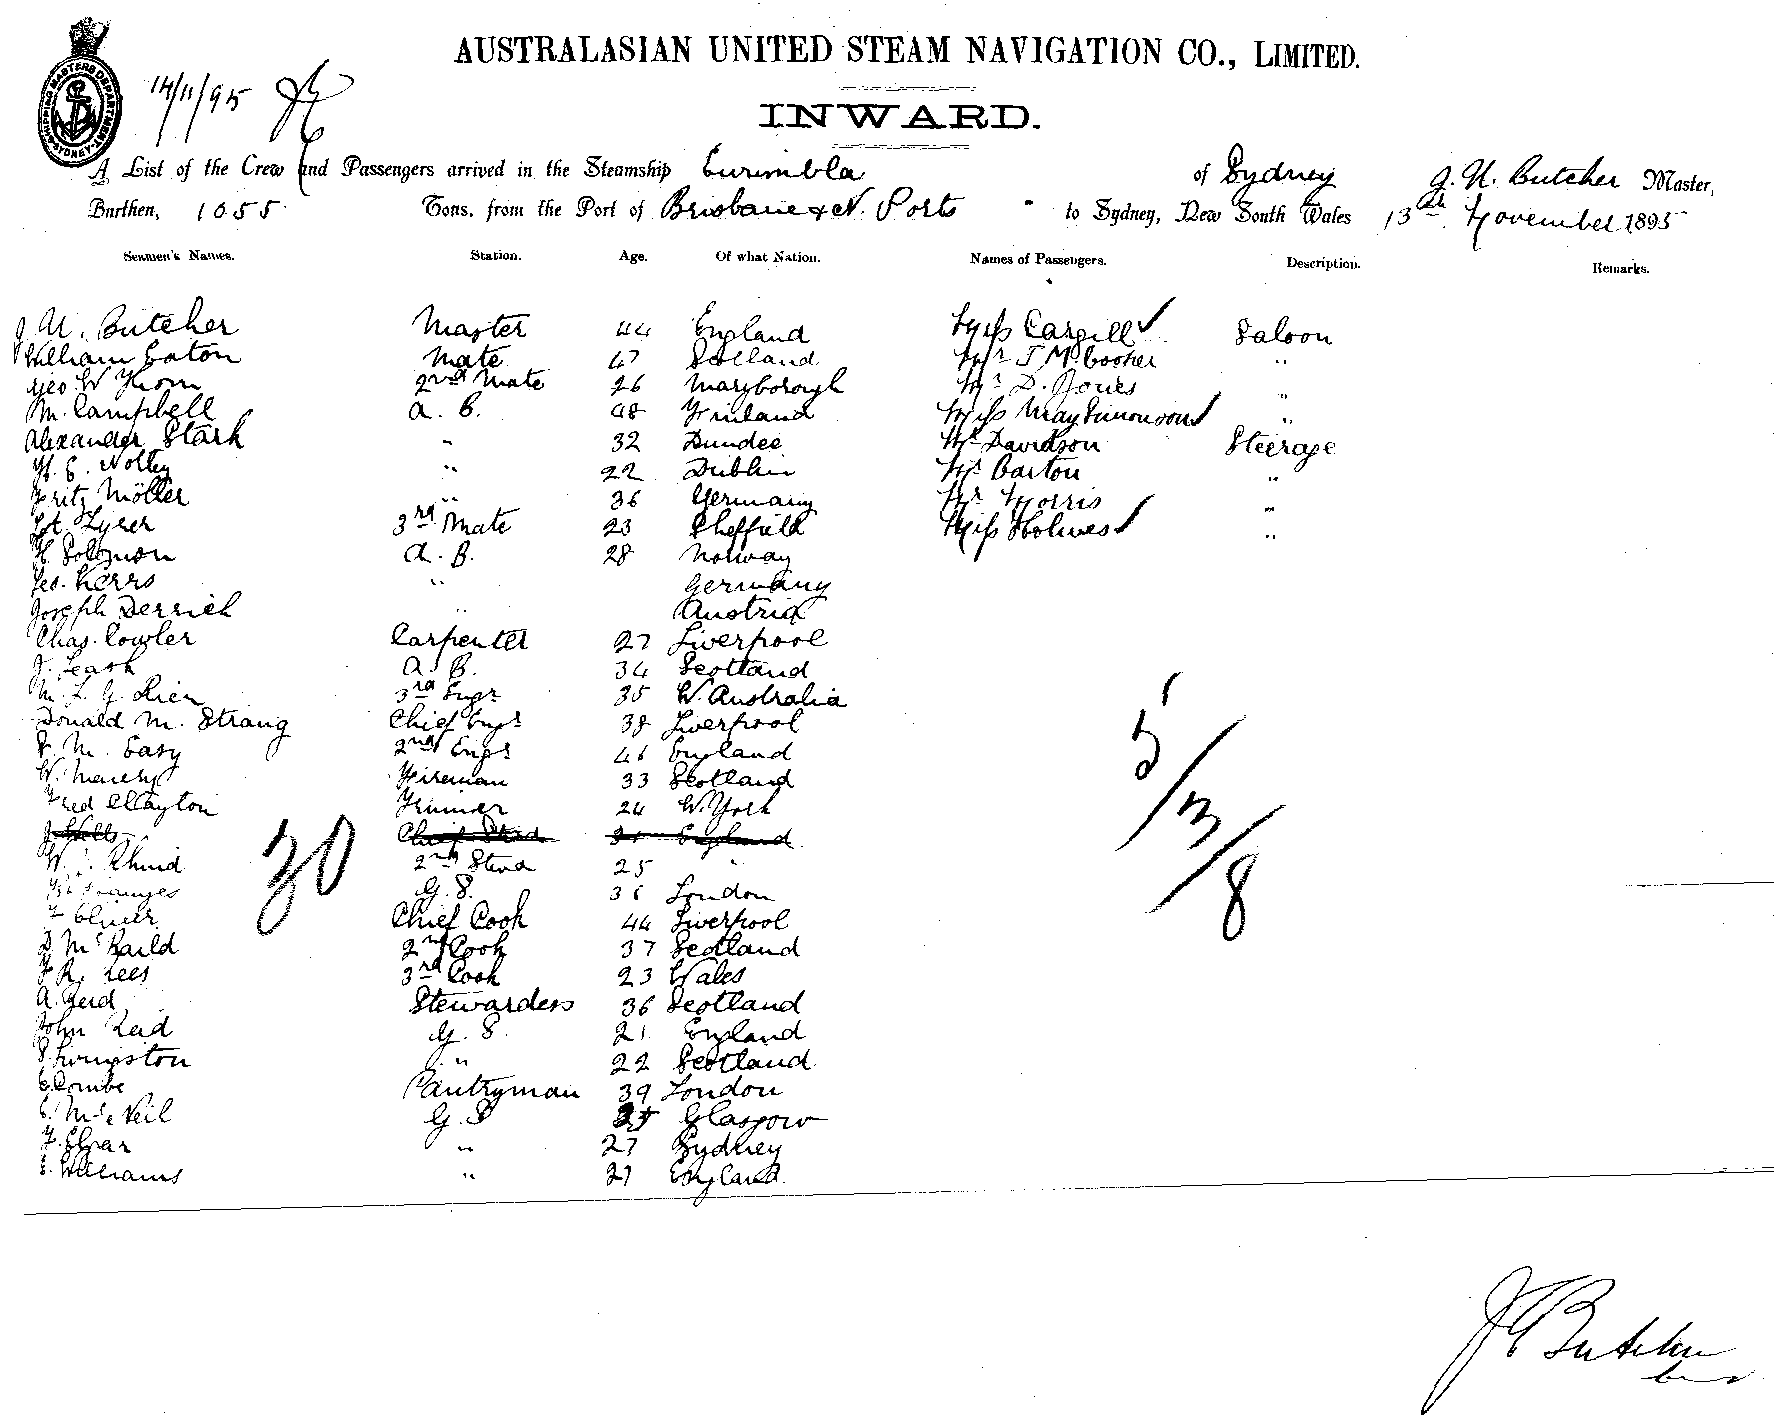 AUSTRALASIAN UNITED STEAM NAVIGATION CO., LIMITED.
SHIPPING MASTERS DEPARTMENT SYDNEY
14/11/95
INWARD.
A List of the Crew and Passengers arrived in the Steamship Eurimbla of Sydney J. H. Butcher Master,
Burthen, 1055 Tons, from the Port of Brisbane & N. Ports to Sydney, New South Wales 13th November 1895
Seamen's Names. Station. Age. Of what Nation. Names of Passengers. Description. Remarks.
Butcher Master 44 England Miss Cargill Saloon
William Eaton Mate 47 Mr J M Cosker "
Geo W Thom 2nd Mate 26 Maryborough Mr D. Jones "
M. Campbell A. B. 48 Miss May Simonson "
Alexander Stark " 32 Dundee Mr Davidson Steerage
" 22 Dublin Mr Barton "
Fritz Möller " 36 Germany Mr Morris "
Tyrer 3rd Mate 23 Sheffield Miss Holmes "
Solomon A. B. 28 Norway
Geo. Kerrs " Germany
Joseph Derrick " Austria
Chas. Cowler Carpenter 27 Liverpool
J. Leask A. B. 34 Scotland
3rd Engr 35 W. Australia
Donald M. Strang Chief Engr 38 Liverpool
M. Easy 2nd Engr 46 England
W. Fireman 33 Scotland
Fred Clayton Trimmer 24 York
Chief Stwd England
W. 2nd Stwd 25 "
G. S. 36 London
Chief Cook 44 Liverpool
D McKaild 2nd Cook 37 Scotland
Lees 3rd Cook 23 Wales
A. Reid Stewardess 36 Scotland
John Reid G. S. 21 England
S. Livingston " 22 Scotland
Combe Pantryman 39 London
McNeil G. S Glasgow
" 27 Sydney
E. Williams " 21 England
30
5/3/8
J Butcher